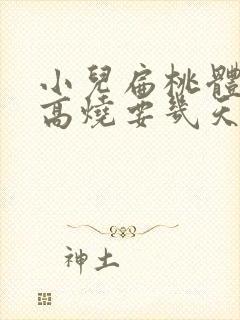 小兒扁桃體
高燒要幾天
神土